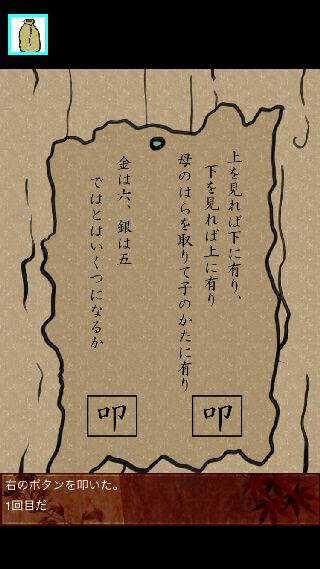 上を見れば下に有り、
下を見れば上に有り
母のはらを取りて子のかたに有り
金は六、銀は五
ではとはいくつになるか
叩
叩
右のボタンを叩いた。
1回目だ